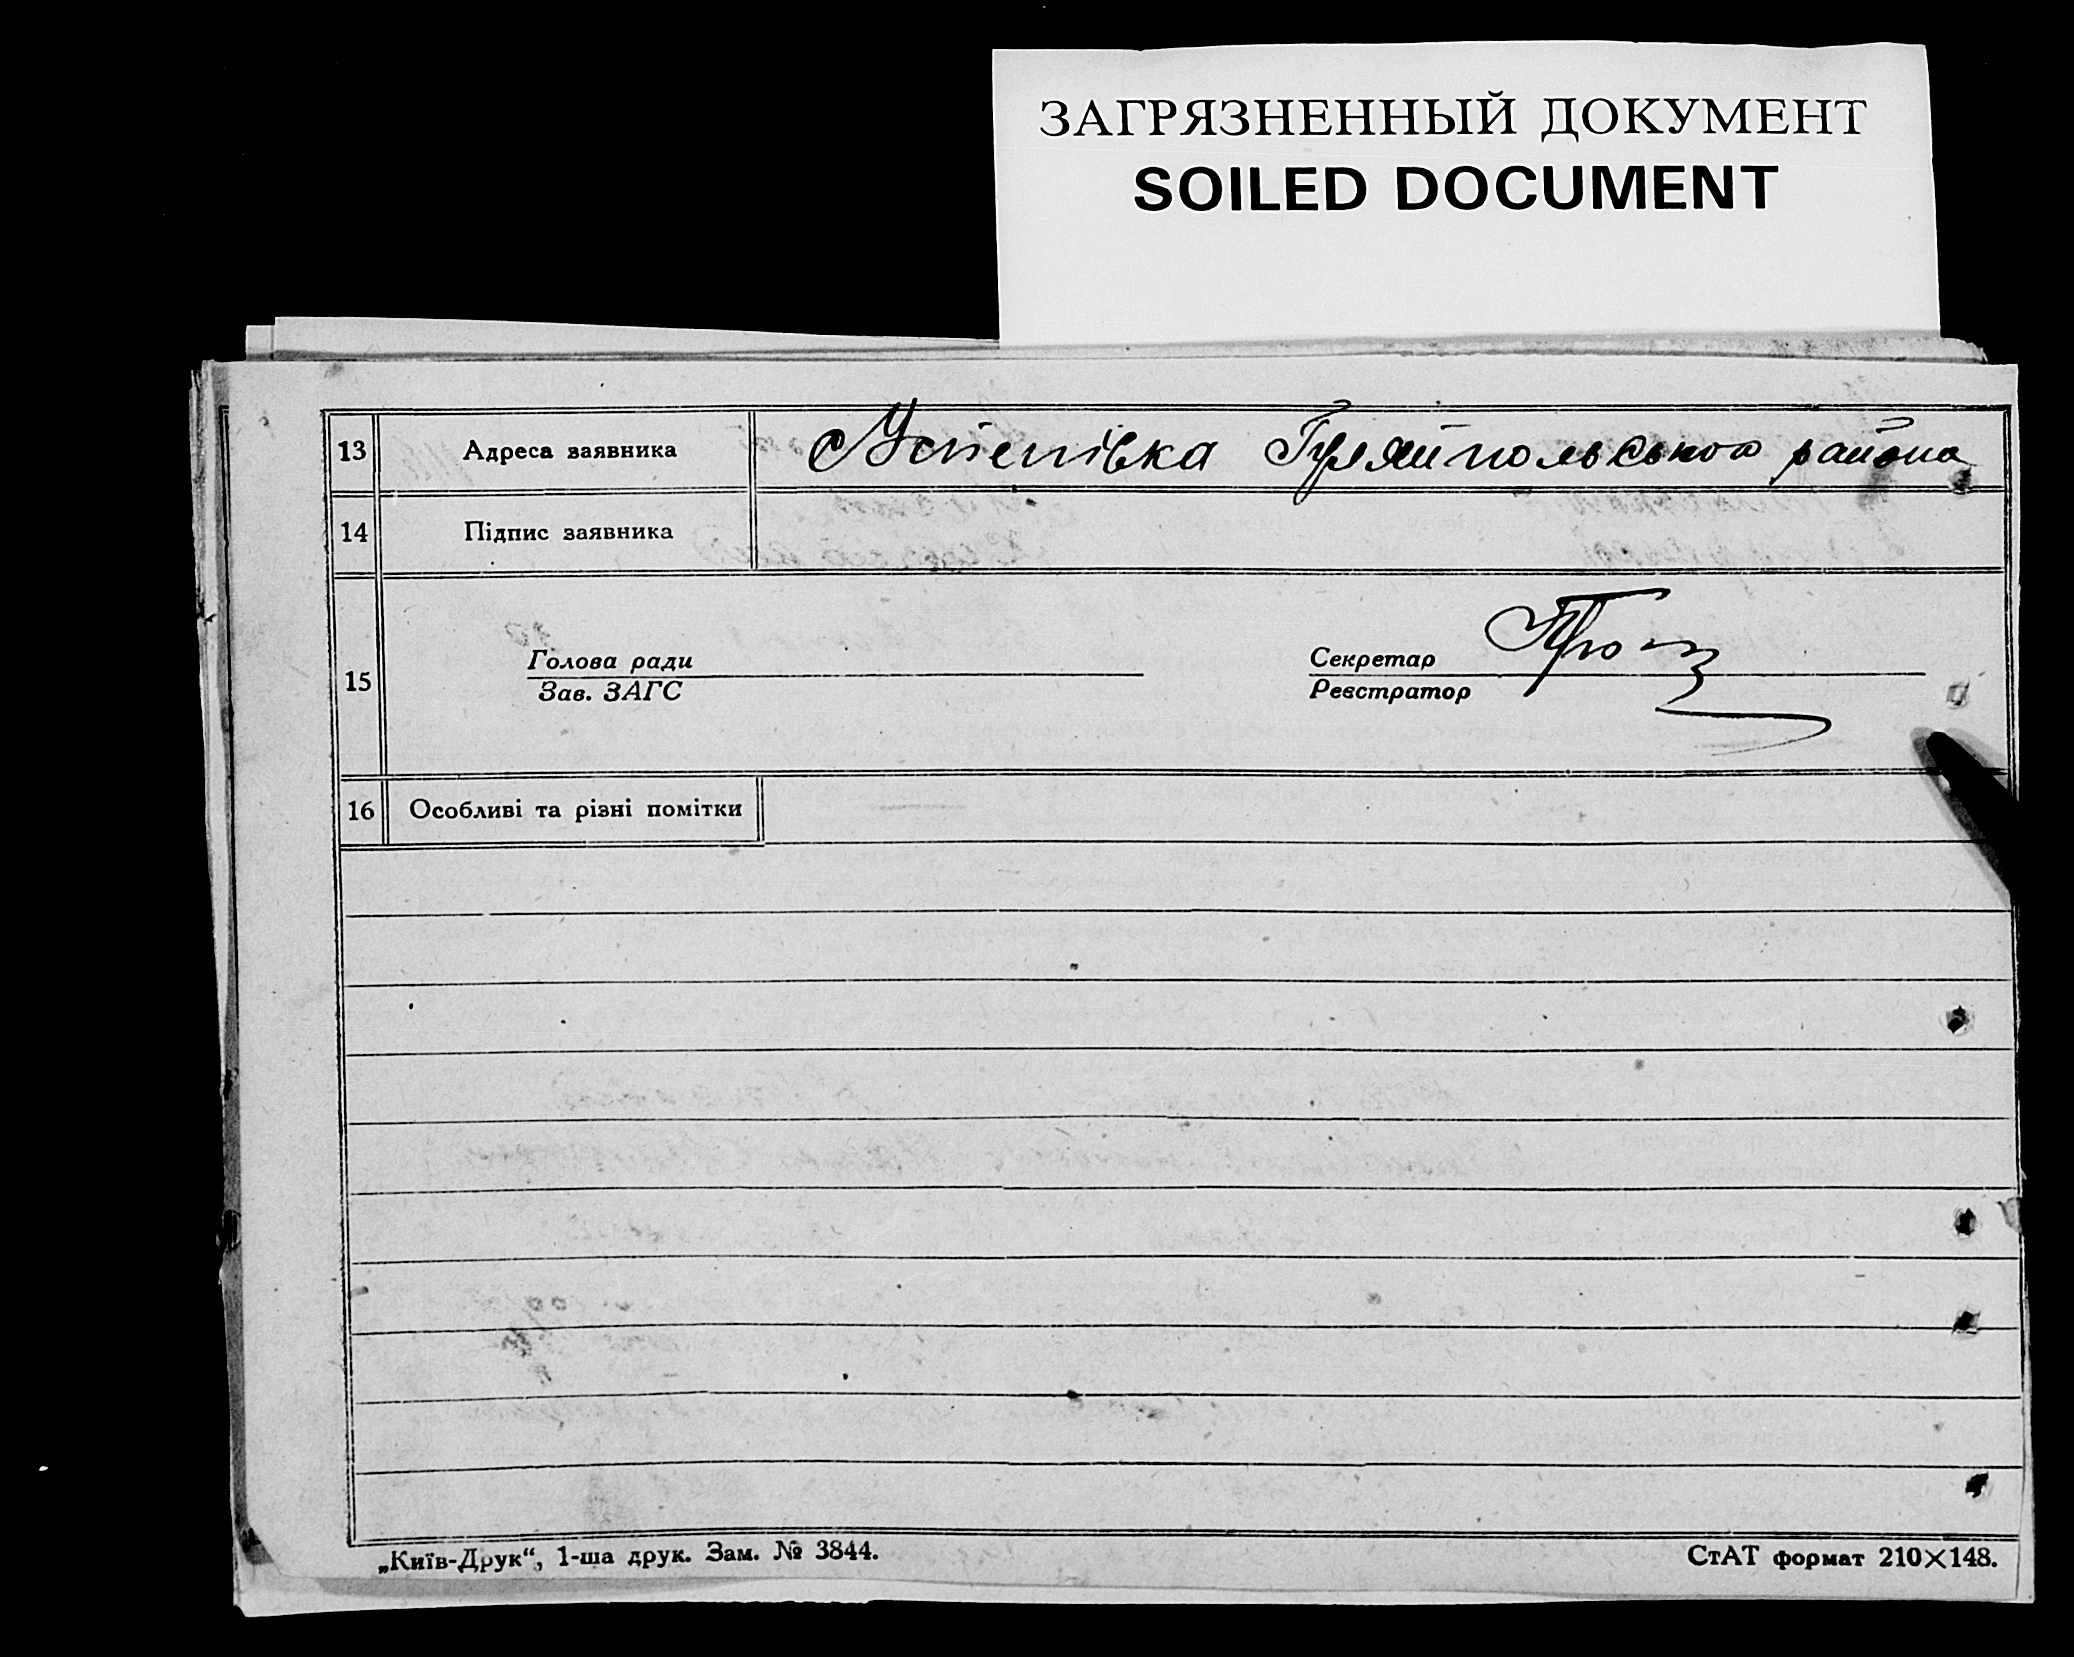 ЗАГРЯЗНЕННЫЙ ДОКУМЕНТ
SOILED DOCUMENT
13 Адреса заявника Успенівка Гуляйпольського района
14 Підпис заявника
15 Голова ради Секретар
Зав. ЗАГС Реєстратор
16 Особливі та різні помітки
„Київ-Друк“, 1-ша друк. Зам. № 3844. СтАТ формат 210×148.